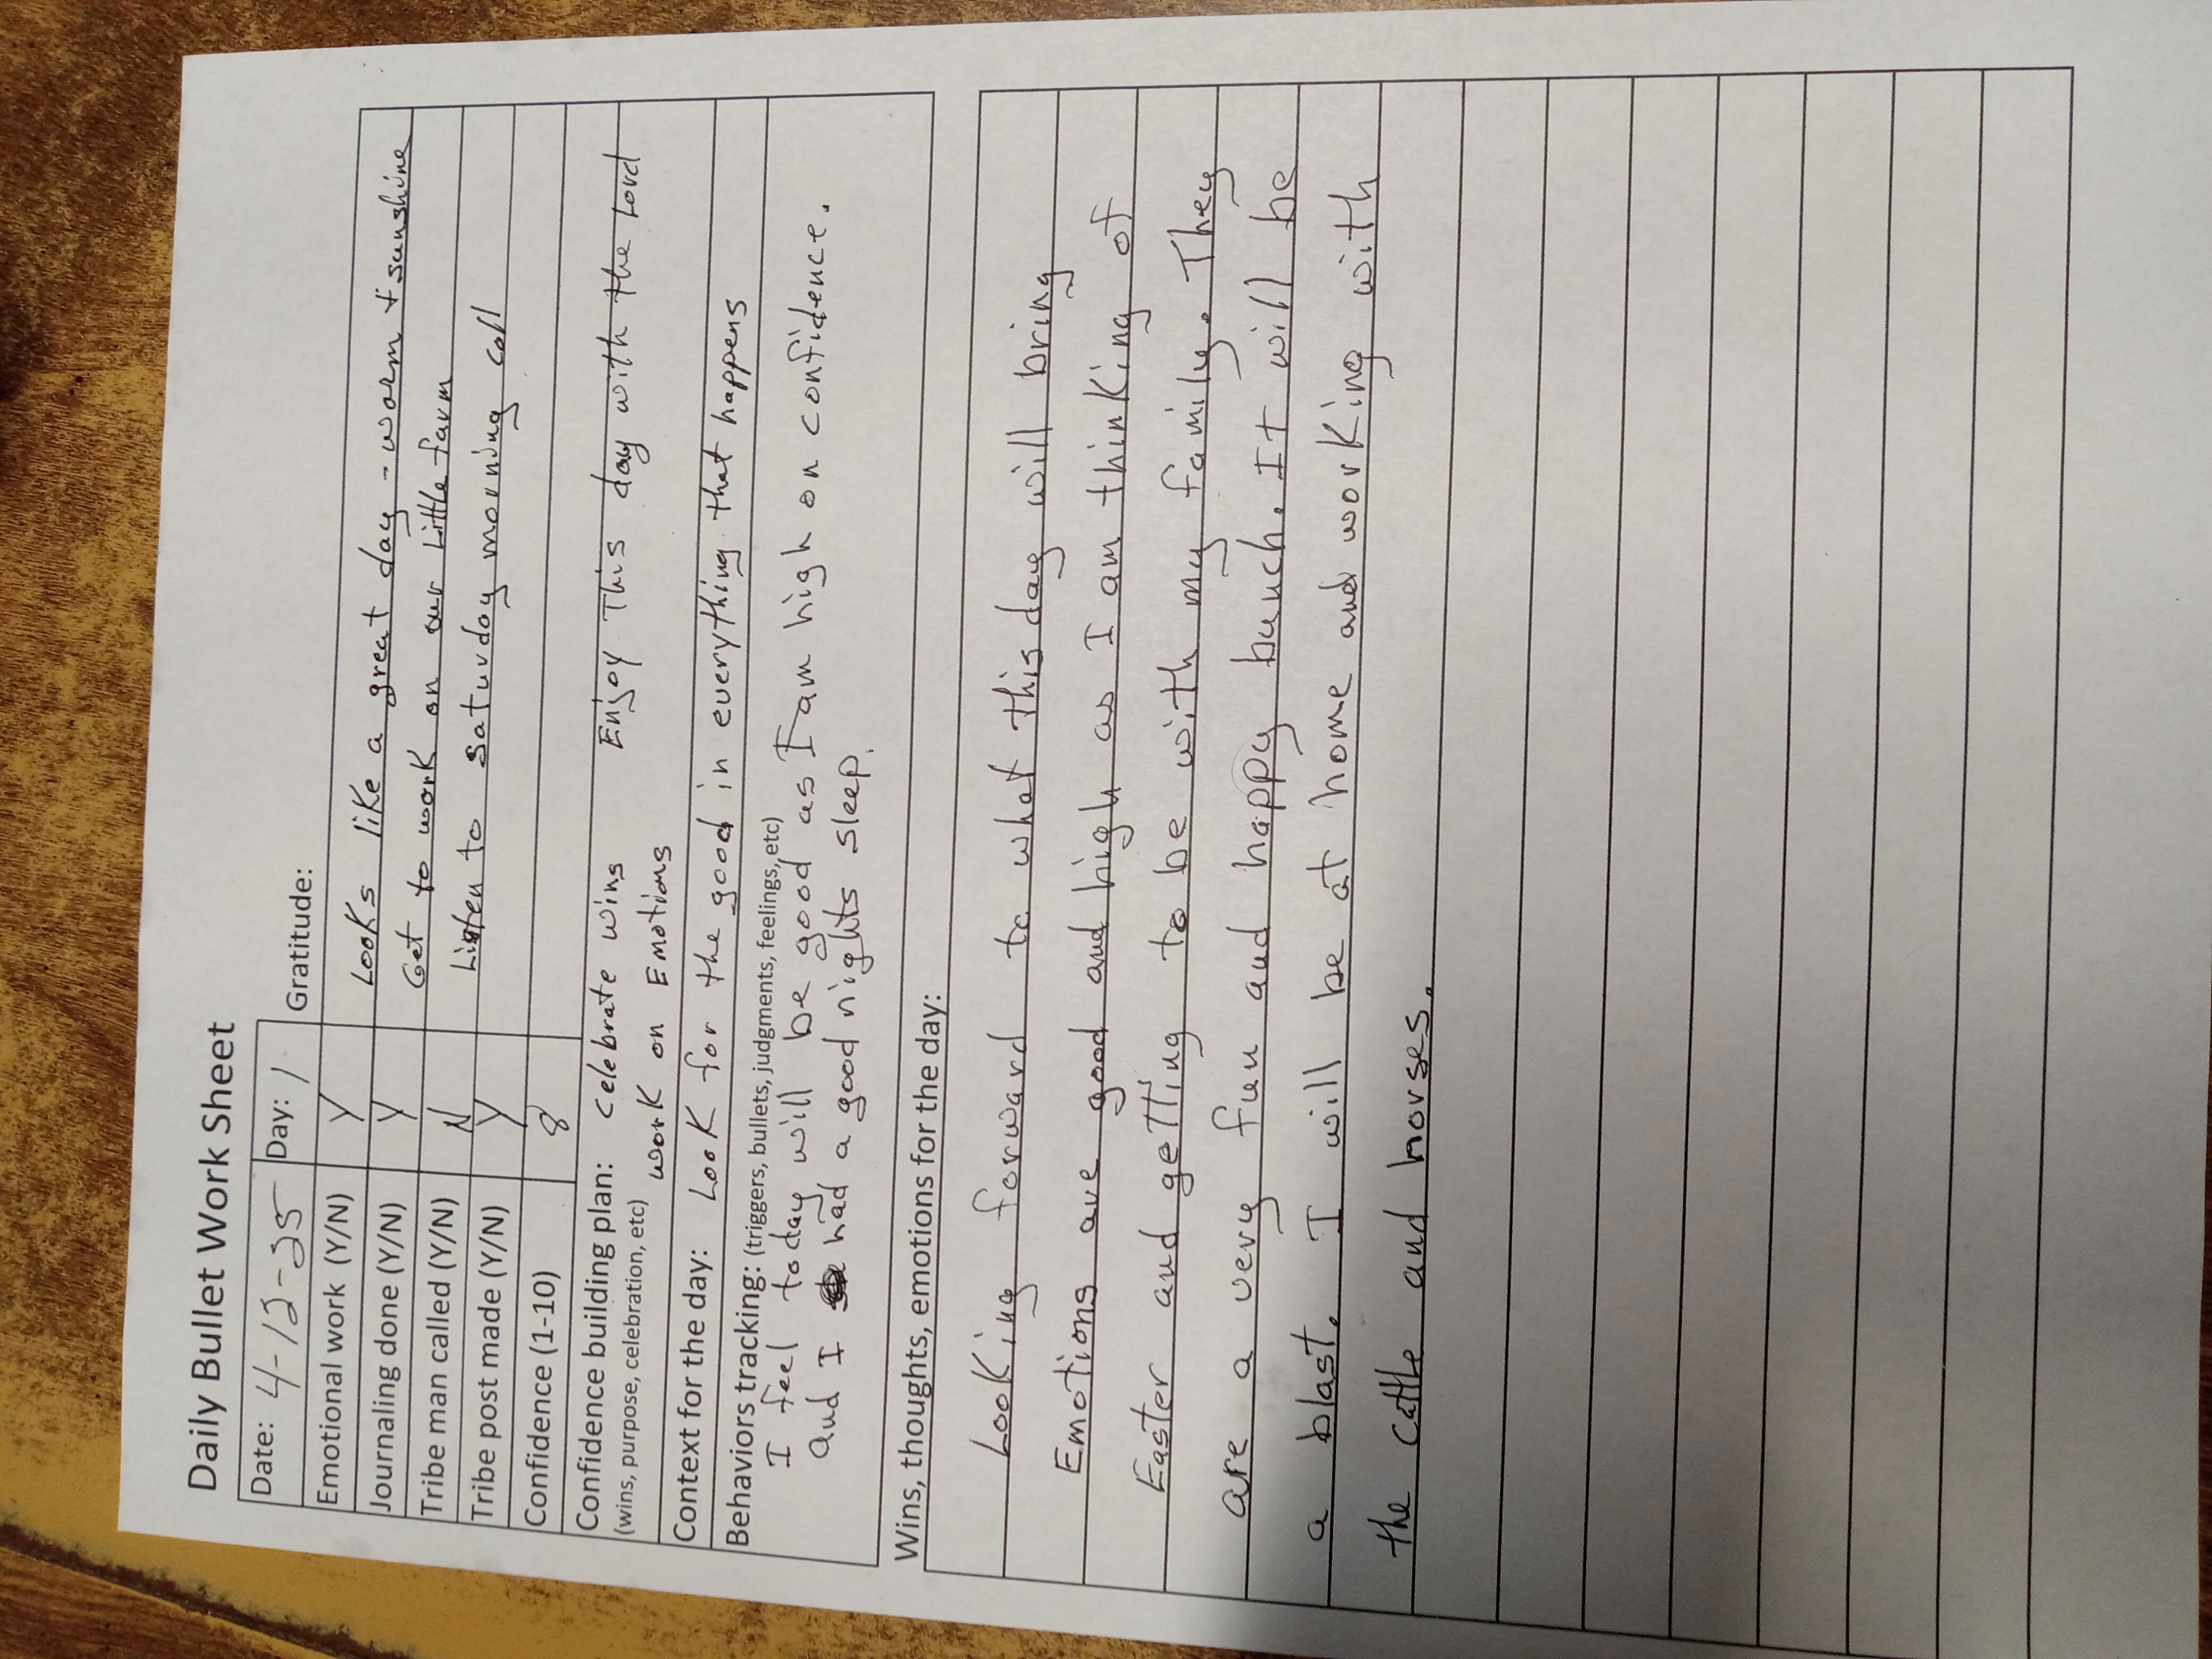 Daily Bullet Work Sheet
Date: 4-12-25 Day: 1
Gratitude:
Emotional work (Y/N) Y Looks like a great day - worm + sunshine
Journaling done (Y/N) Y Get to work on our Little farm
Tribe man called (Y/N) N Listen to saturday morning call
Tribe post made (Y/N) Y
Confidence (1-10) 8
Confidence building plan: celebrate wins Enjoy This day with the Lord
(wins, purpose, celebration, etc) work on Emotions
Context for the day: Look for the good in everything that happens
Behaviors tracking: (triggers, bullets, judgments, feelings, etc)
I feel today will be good as I am high on confidence.
and I had a good nights sleep.
Wins, thoughts, emotions for the day:
Looking forward to what this day will bring
Emotions are good and high as I am thinking of
Easter and getting to be with my family. They
are a very fun and happy bunch. It will be
a blast. I will be at home and working with
the cattle and horses.